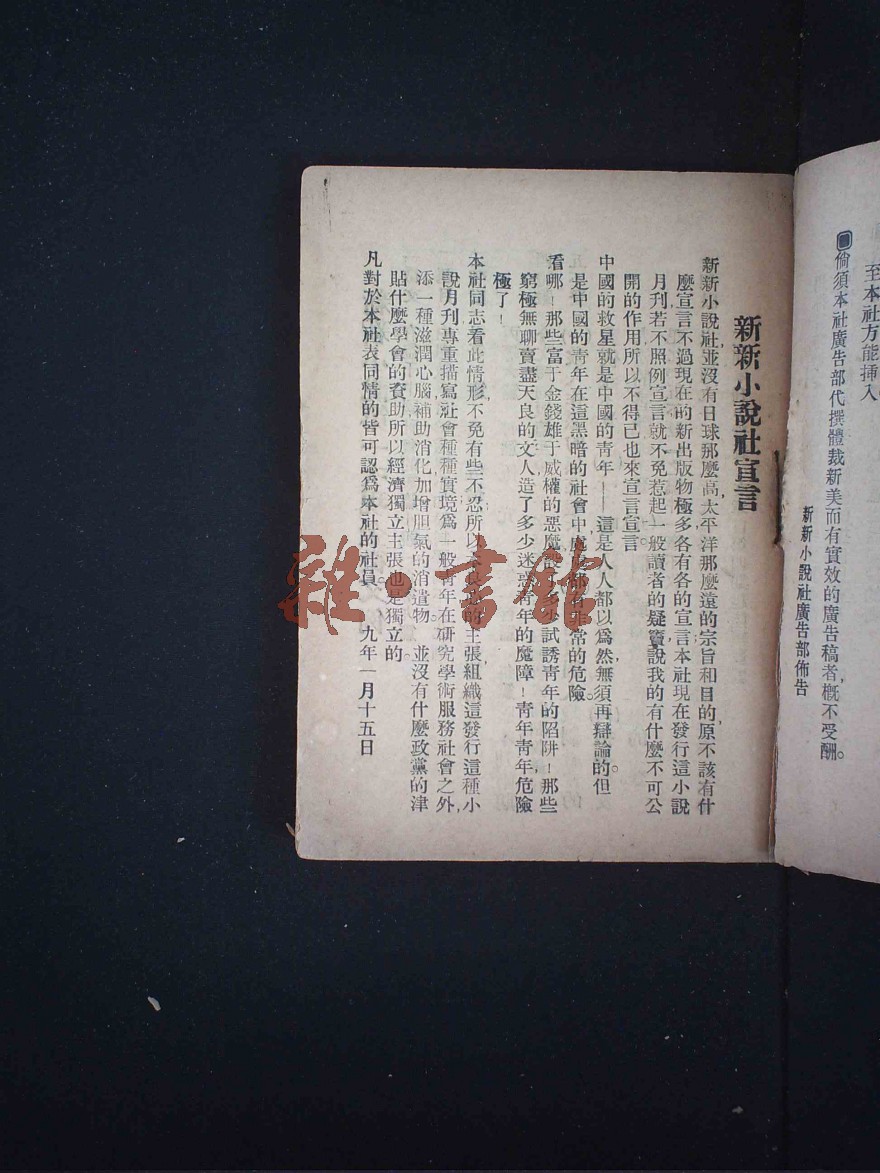 至本社方能挿入
倘須本社廣告部代撰體裁新美而有實效的廣告稿者，概不受酬。
新新小說社廣告部佈告
新新小說社宣言
新新小說社，並沒有日球那麼高，太平洋那麼遠的宗旨和目的，原不該有什
麼宣言，不過現在的新出版物極多，各有各的宣言，本社現在發行這小說
月刊，若不照例宣言，就不免惹起一般讀者的疑竇，說我的有什麼不可公
開的作用，所以不得已也來宣言宣言。
中國的救星，就是中國的青年——這是人人都以爲然，無須再辯論的。但
是中國的青年，在這黑暗的社會中，處處都有非常的危險。
看哪！那些富于金錢雄于威權的惡魔，設多少試誘青年的陷阱！那些
窮極無聊賣盡天良的文人，造了多少迷惑青年的魔障！青年青年危險
極了！
本社同志，看此情形，不免有些不忍，所以本良心的主張，組織這發行這種小
說月刊，專重描寫社會種種實境，爲一般青年在研究學術服務社會之外，
添一種滋潤心腦補助消化加增胆氣的消遣物。並沒有什麼政黨的津
貼，什麼學會的資助，所以經濟獨立，主張也是獨立的。
凡對於本社表同情的，皆可認爲本社的社員。 九年一月十五日
雜·書館